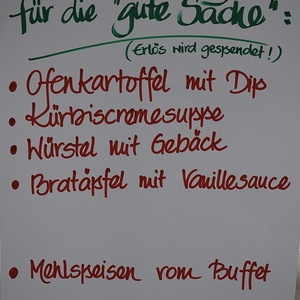 für die "gute Sache":
(Erlös wird gespendet!)
• Ofenkartoffel mit Dip
• Kürbiscremesuppe
• Würstel mit Gebäck
• Bratäpfel mit Vanillesauce
• Mehlspeisen vom Buffet